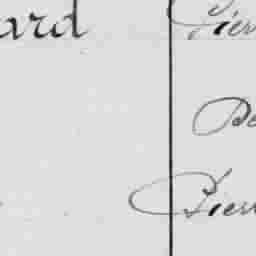 ard
Pier
De
Pier